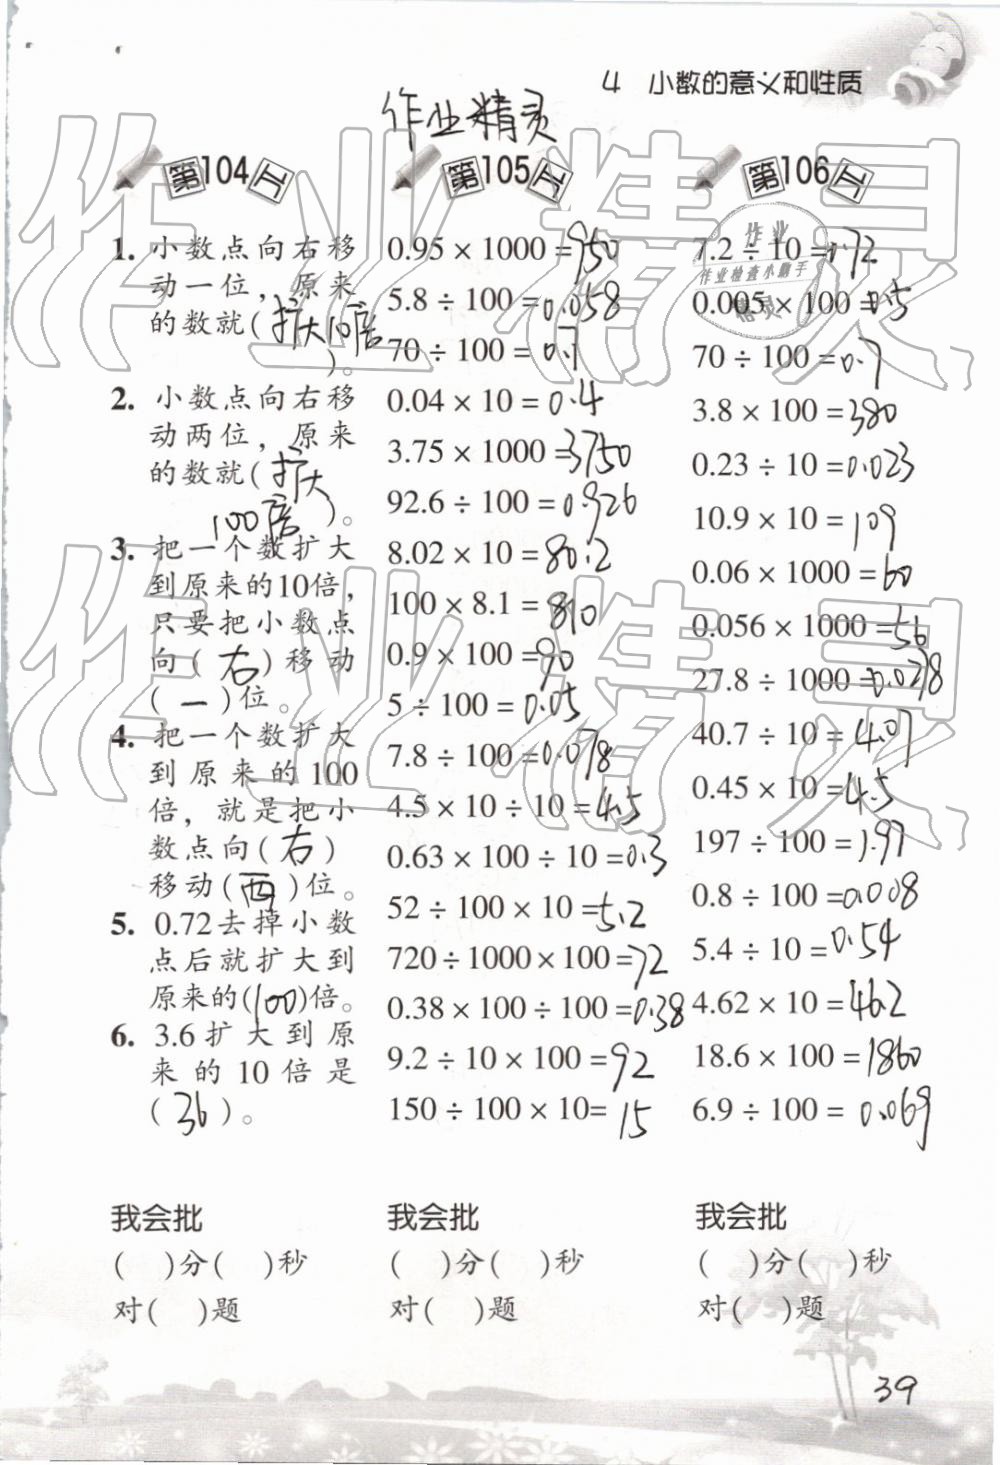 4 小数的意义和性质
作业精灵
第104工
1. 小数点向右移
动一位，原来
的数就(扩大10倍
)。
2. 小数点向右移
动两位，原来
的数就(扩大
100倍)。
3. 把一个数扩大
到原来的10倍，
只要把小数点
向(右)移动
(一)位。
4. 把一个数扩大
到原来的100
倍，就是把小
数点向(右)
移动(两)位。
5. 0.72去掉小数
点后就扩大到
原来的(100)倍。
6. 3.6扩大到原
来的10倍是
(36)。
我会批
( )分( )秒
对( )题
第105工
0.95 × 1000 =950
5.8 ÷ 100 =0.058
70 ÷ 100 = 0.7
0.04 × 10 = 0.4
3.75 × 1000 =3750
92.6 ÷ 100 =0.926
8.02 × 10 = 80.2
100 × 8.1 = 810
0.9 × 100 = 90
5 ÷ 100 = 0.05
7.8 ÷ 100 =0.078
4.5 × 10 ÷ 10 =4.5
0.63 × 100 ÷ 10 =0.3
52 ÷ 100 × 10 =5.2
720 ÷ 1000 × 100 =72
0.38 × 100 ÷ 100 =0.38
9.2 ÷ 10 × 100 = 92
150 ÷ 100 × 10= 15
我会批
( )分( )秒
对( )题
第106工
7.2 ÷ 10 =0.72
0.005 × 100 =0.5
70 ÷ 100 =0.7
3.8 × 100 =380
0.23 ÷ 10 =0.023
10.9 × 10 = 109
0.06 × 1000 =60
0.056 × 1000 =56
27.8 ÷ 1000 =0.0278
40.7 ÷ 10 = 4.07
0.45 × 10 =4.5
197 ÷ 100 =1.97
0.8 ÷ 100 =0.008
5.4 ÷ 10 = 0.54
4.62 × 10 =46.2
18.6 × 100 =1860
6.9 ÷ 100 = 0.069
我会批
( )分( )秒
对( )题
39
作业
作业检查小助手
精灵
作业精灵
作业精灵